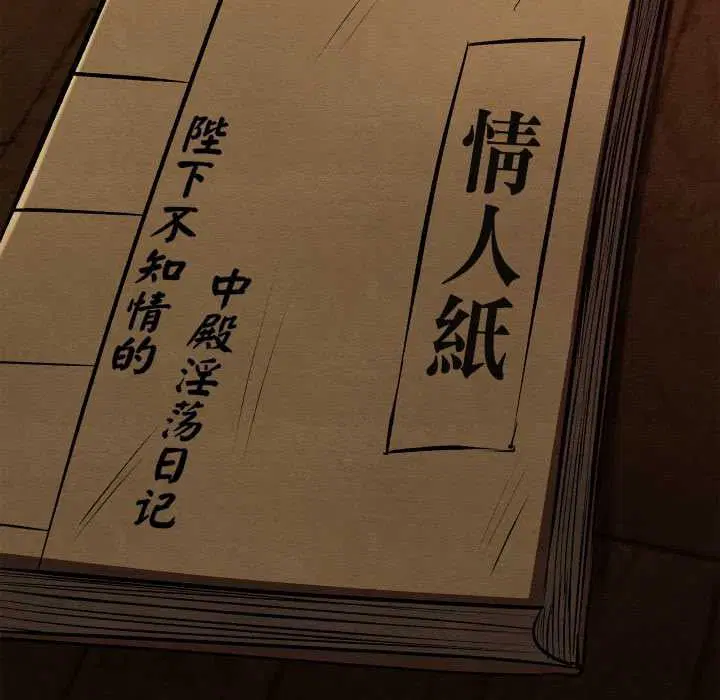 情人紙
陛下不知情的
中殿淫荡日记